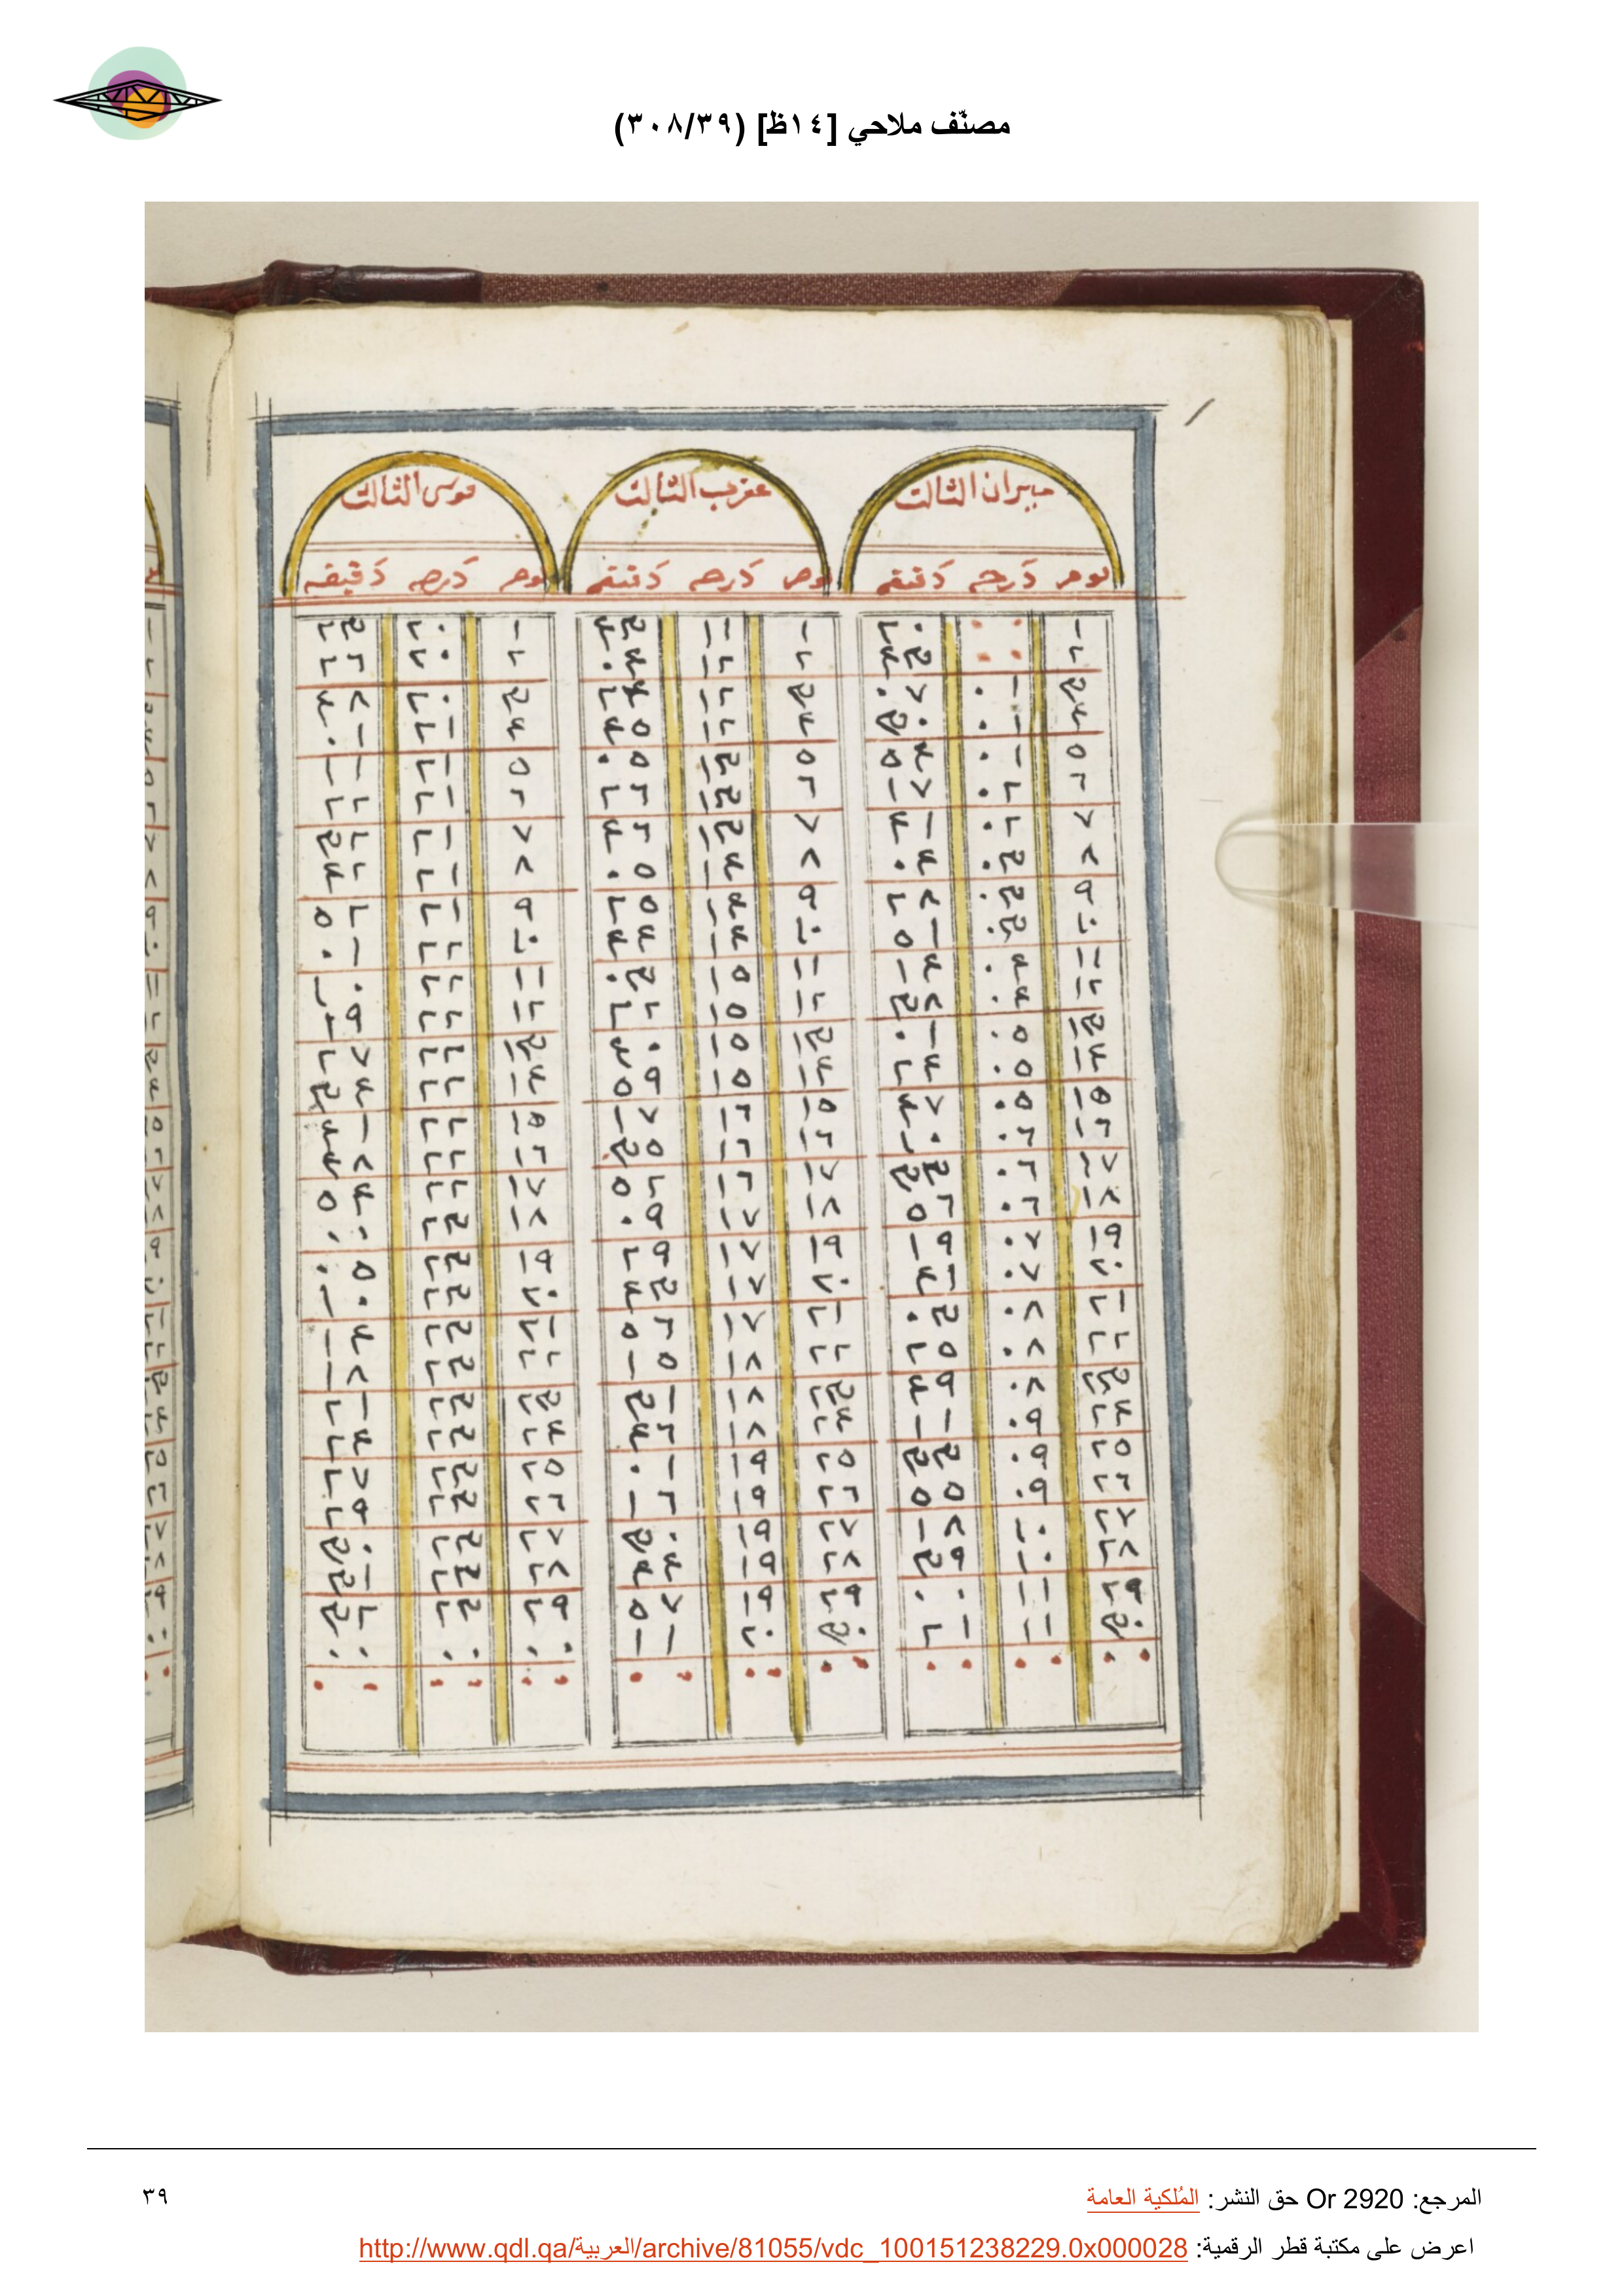 مصنّف ملاحي [١٤ظ] (٣٠٨/٣٩)
ميزان الثالث عقرب الثالث قوس الثالث
يوم درجه دقيقه يوم درجه دقيقه يوم درجه دقيقه
١ ٠٠ ٢٠ ١ ١١ ٤٣ ١ ٢٠ ٢٣
٢ ٠٠ ٤٣ ٢ ١٢ ٠٤ ٢ ٢٠ ٢٦
٣ ٠١ ٠٧ ٣ ١٢ ٢٤ ٣ ٢٠ ٤٨
٤ ٠١ ٣٠ ٤ ١٢ ٤٥ ٤ ٢١ ٠١
٥ ٠١ ٥٤ ٥ ١٣ ٠٥ ٥ ٢١ ١١
٦ ٠٢ ١٧ ٦ ١٣ ٢٦ ٦ ٢١ ٢٢
٧ ٠٢ ٤١ ٧ ١٣ ٤٦ ٧ ٢١ ٣٢
٨ ٠٣ ٠٤ ٨ ١٤ ٠٥ ٨ ٢١ ٤٢
٩ ٠٣ ٢٨ ٩ ١٤ ٢٥ ٩ ٢١ ٥٢
١٠ ٠٣ ٥١ ١٠ ١٤ ٤٤ ١٠ ٢٢ ٠١
١١ ٠٤ ١٤ ١١ ١٥ ٠٣ ١١ ٢٢ ١٠
١٢ ٠٤ ٣٨ ١٢ ١٥ ٢٢ ١٢ ٢٢ ١٩
١٣ ٠٥ ٠١ ١٣ ١٥ ٤٠ ١٣ ٢٢ ٢٧
١٤ ٠٥ ٢٤ ١٤ ١٥ ٥٩ ١٤ ٢٢ ٣٤
١٥ ٠٥ ٤٧ ١٥ ١٦ ١٧ ١٥ ٢٢ ٤١
١٦ ٠٦ ١٠ ١٦ ١٦ ٣٥ ١٦ ٢٢ ٤٨
١٧ ٠٦ ٣٣ ١٧ ١٦ ٥٢ ١٧ ٢٢ ٥٤
١٨ ٠٦ ٥٦ ١٨ ١٧ ٠٩ ١٨ ٢٣ ٠٠
١٩ ٠٧ ١٩ ١٩ ١٧ ٢٩ ١٩ ٢٣ ٠٥
٢٠ ٠٧ ٢٠ ١٧ ٤٣ ٢٠ ٢٣ ١٠
٢١ ٠٨ ٠٣ ٢١ ١٧ ٥٦ ٢١ ٢٣ ١٤
٢٢ ٠٨ ٢٥ ٢٢ ١٨ ١٥ ٢٢ ٢٣ ١٨
٢٣ ٠٨ ٤٩ ٢٣ ١٨ ٣١ ٢٣ ٢٣ ٢١
٢٤ ٠٩ ١١ ٢٤ ١٨ ٤٦ ٢٤ ٢٣ ٢٤
٢٥ ٠٩ ٣٣ ٢٥ ١٩ ٠١ ٢٥ ٢٣ ٢٧
٢٦ ٠٩ ٥٥ ٢٦ ١٩ ١٦ ٢٦ ٢٣ ٢٩
٢٧ ١٠ ١٨ ٢٧ ١٩ ٣٠ ٢٧ ٢٣ ٣٠
٢٨ ١٠ ٣٩ ٢٨ ١٩ ٤٤ ٢٨ ٢٣ ٣١
٢٩ ١١ ٠٠ ٢٩ ١٩ ٥٧ ٢٩ ٢٣ ٣٢
٣٠ ١١ ٢١ ٣٠ ٢٠ ١١ ٠٠ ٠٠ ٠٠
المرجع: Or 2920 حق النشر: المُلكية العامة
٣٩
اعرض على مكتبة قطر الرقمية: http://www.qdl.qa/العربية/archive/81055/vdc_100151238229.0x000028